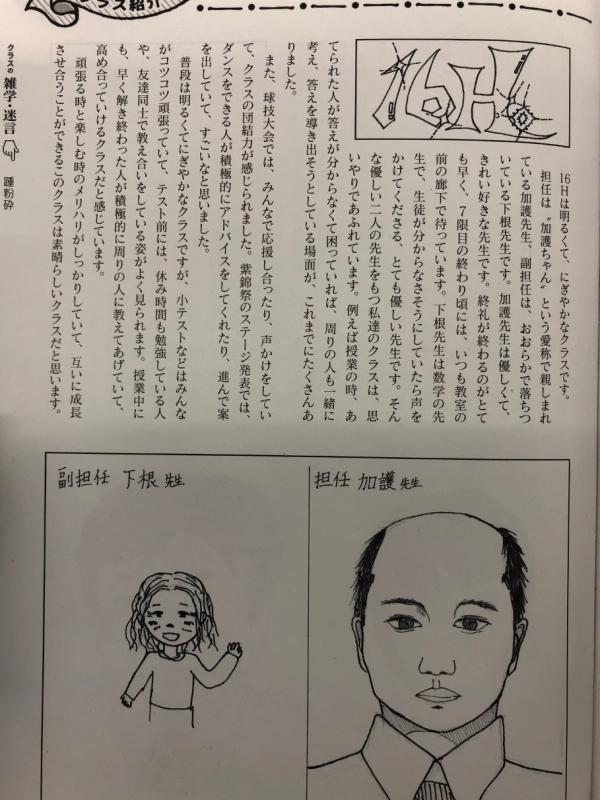 クラス紹介
16H
16Hは明るくて、にぎやかなクラスです。
担任は〝加護ちゃん〟という愛称で親しまれ
ている加護先生、副担任は、おおらかで落ちつ
いている下根先生です。加護先生は優しくて、
きれい好きな先生です。終礼が終わるのがとて
も早く、7限目の終わり頃には、いつも教室の
前の廊下で待っています。下根先生は数学の先
生で、生徒が分からなさそうにしていたら声を
かけてくださる、とても優しい先生です。そん
な優しい二人の先生をもつ私達のクラスは、思
いやりであふれています。例えば授業の時、あ
てられた人が答えが分からなくて困っていれば、周りの人も一緒に
考え、答えを導き出そうとしている場面が、これまでにたくさんあ
りました。
また、球技大会では、みんなで応援し合ったり、声かけをしてい
て、クラスの団結力が感じられました。紫錦祭のステージ発表では、
ダンスをできる人が積極的にアドバイスをしてくれたり、進んで案
を出していて、すごいなと思いました。
普段は明るくてにぎやかなクラスですが、小テストなどはみんな
がコツコツ頑張っていて、テスト前には、休み時間も勉強している人
や、友達同士で教え合いをしている姿がよく見られます。授業中に
も、早く解き終わった人が積極的に周りの人に教えてあげていて、
高め合っていけるクラスだと感じています。
頑張る時と楽しむ時のメリハリがしっかりしていて、互いに成長
させ合うことができるこのクラスは素晴らしいクラスだと思います。
クラスの 雑学・迷言 踵粉砕
担任 加護 先生
副担任 下根 先生